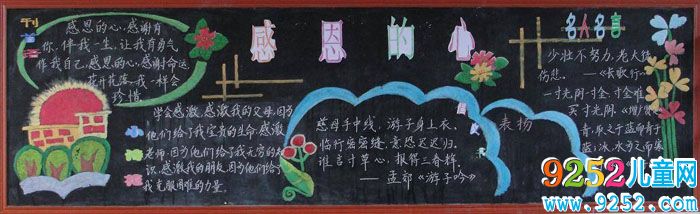 刊首
感恩的心,感谢有
你,伴我一生,让我有勇气
作我自己,感恩的心,感谢命运,
花开花落,我一样会
珍惜
感恩的心
学会感激,感激我的父母,因为
他们给了我宝贵的生命,感激
老师,因为他们给了我无穷的知
识,感激我的朋友,因为他们给了
我克服困难的力量。
慈母手中线,游子身上衣,
临行密密缝,意恐迟迟归,
谁言寸草心,报得三春晖。
——孟郊《游子吟》
表扬
名人名言
少壮不努力,老大徒
伤悲。——《长歌行》
一寸光阴一寸金,寸金难
买寸光阴。——《增广贤
青,取之于蓝而青于
蓝;冰,水为之而寒
9252儿童网
www.9252.com